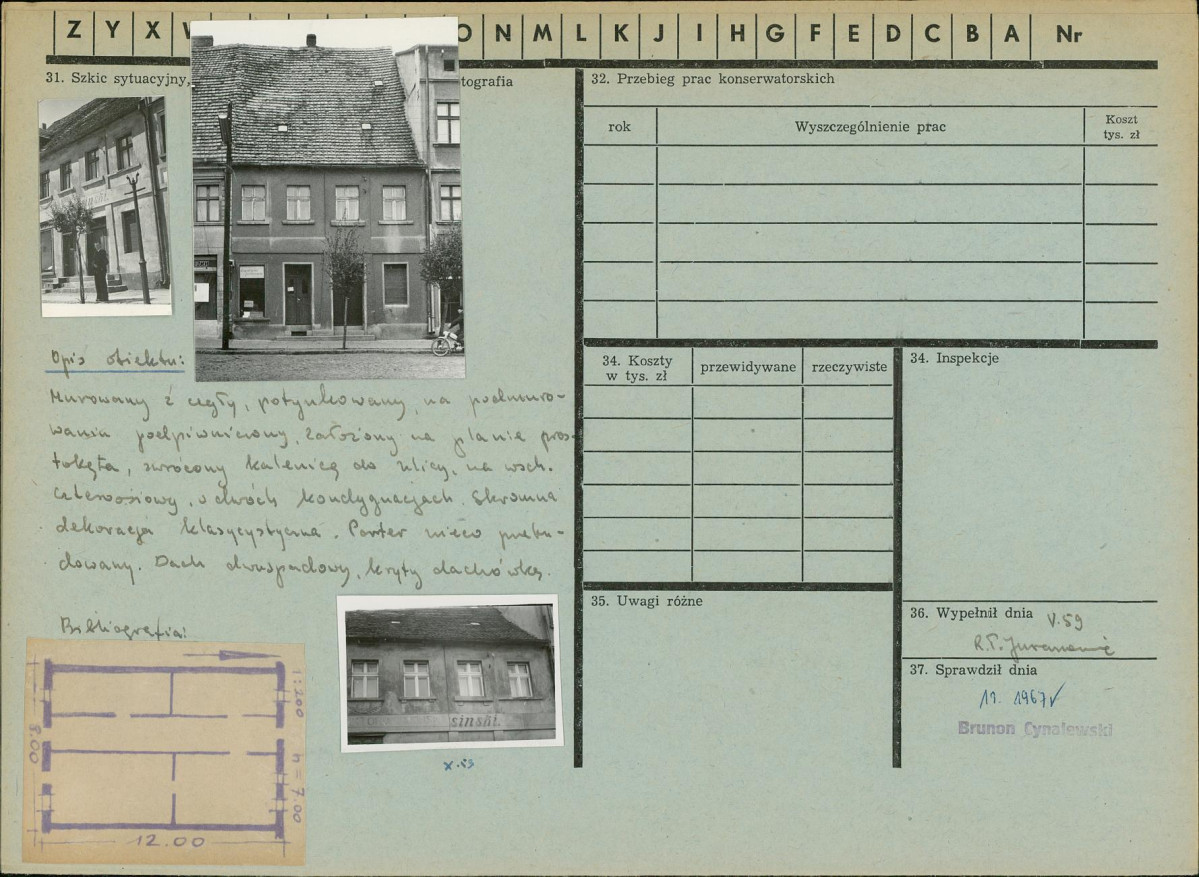 Z Y X O N M L K J I H G F E D C B A Nr
31. Szkic sytuacyjny, tografia
Opis obiektu:
Murowany z cegły, potynkowany, na podmuro-
waniu podpiwniczony, założony na planie pros-
tokąta, zwrócony kalenicą do ulicy, na wsch.
czteroosiowy, o dwóch kondygnacjach. Skromna
dekoracja klasycystyczna. Parter nieco przebu-
dowany. Dach dwuspadowy, kryty dachówką.
Bibliografia:
1:200 h = 7.00
8.00
12.00
sinski.
X.59
32. Przebieg prac konserwatorskich
rok Wyszczególnienie prac Koszt
tys. zł
34. Koszty
w tys. zł
przewidywane rzeczywiste
34. Inspekcje
35. Uwagi różne
36. Wypełnił dnia V.59
37. Sprawdził dnia
11. 1967
Brunon Cynalewski